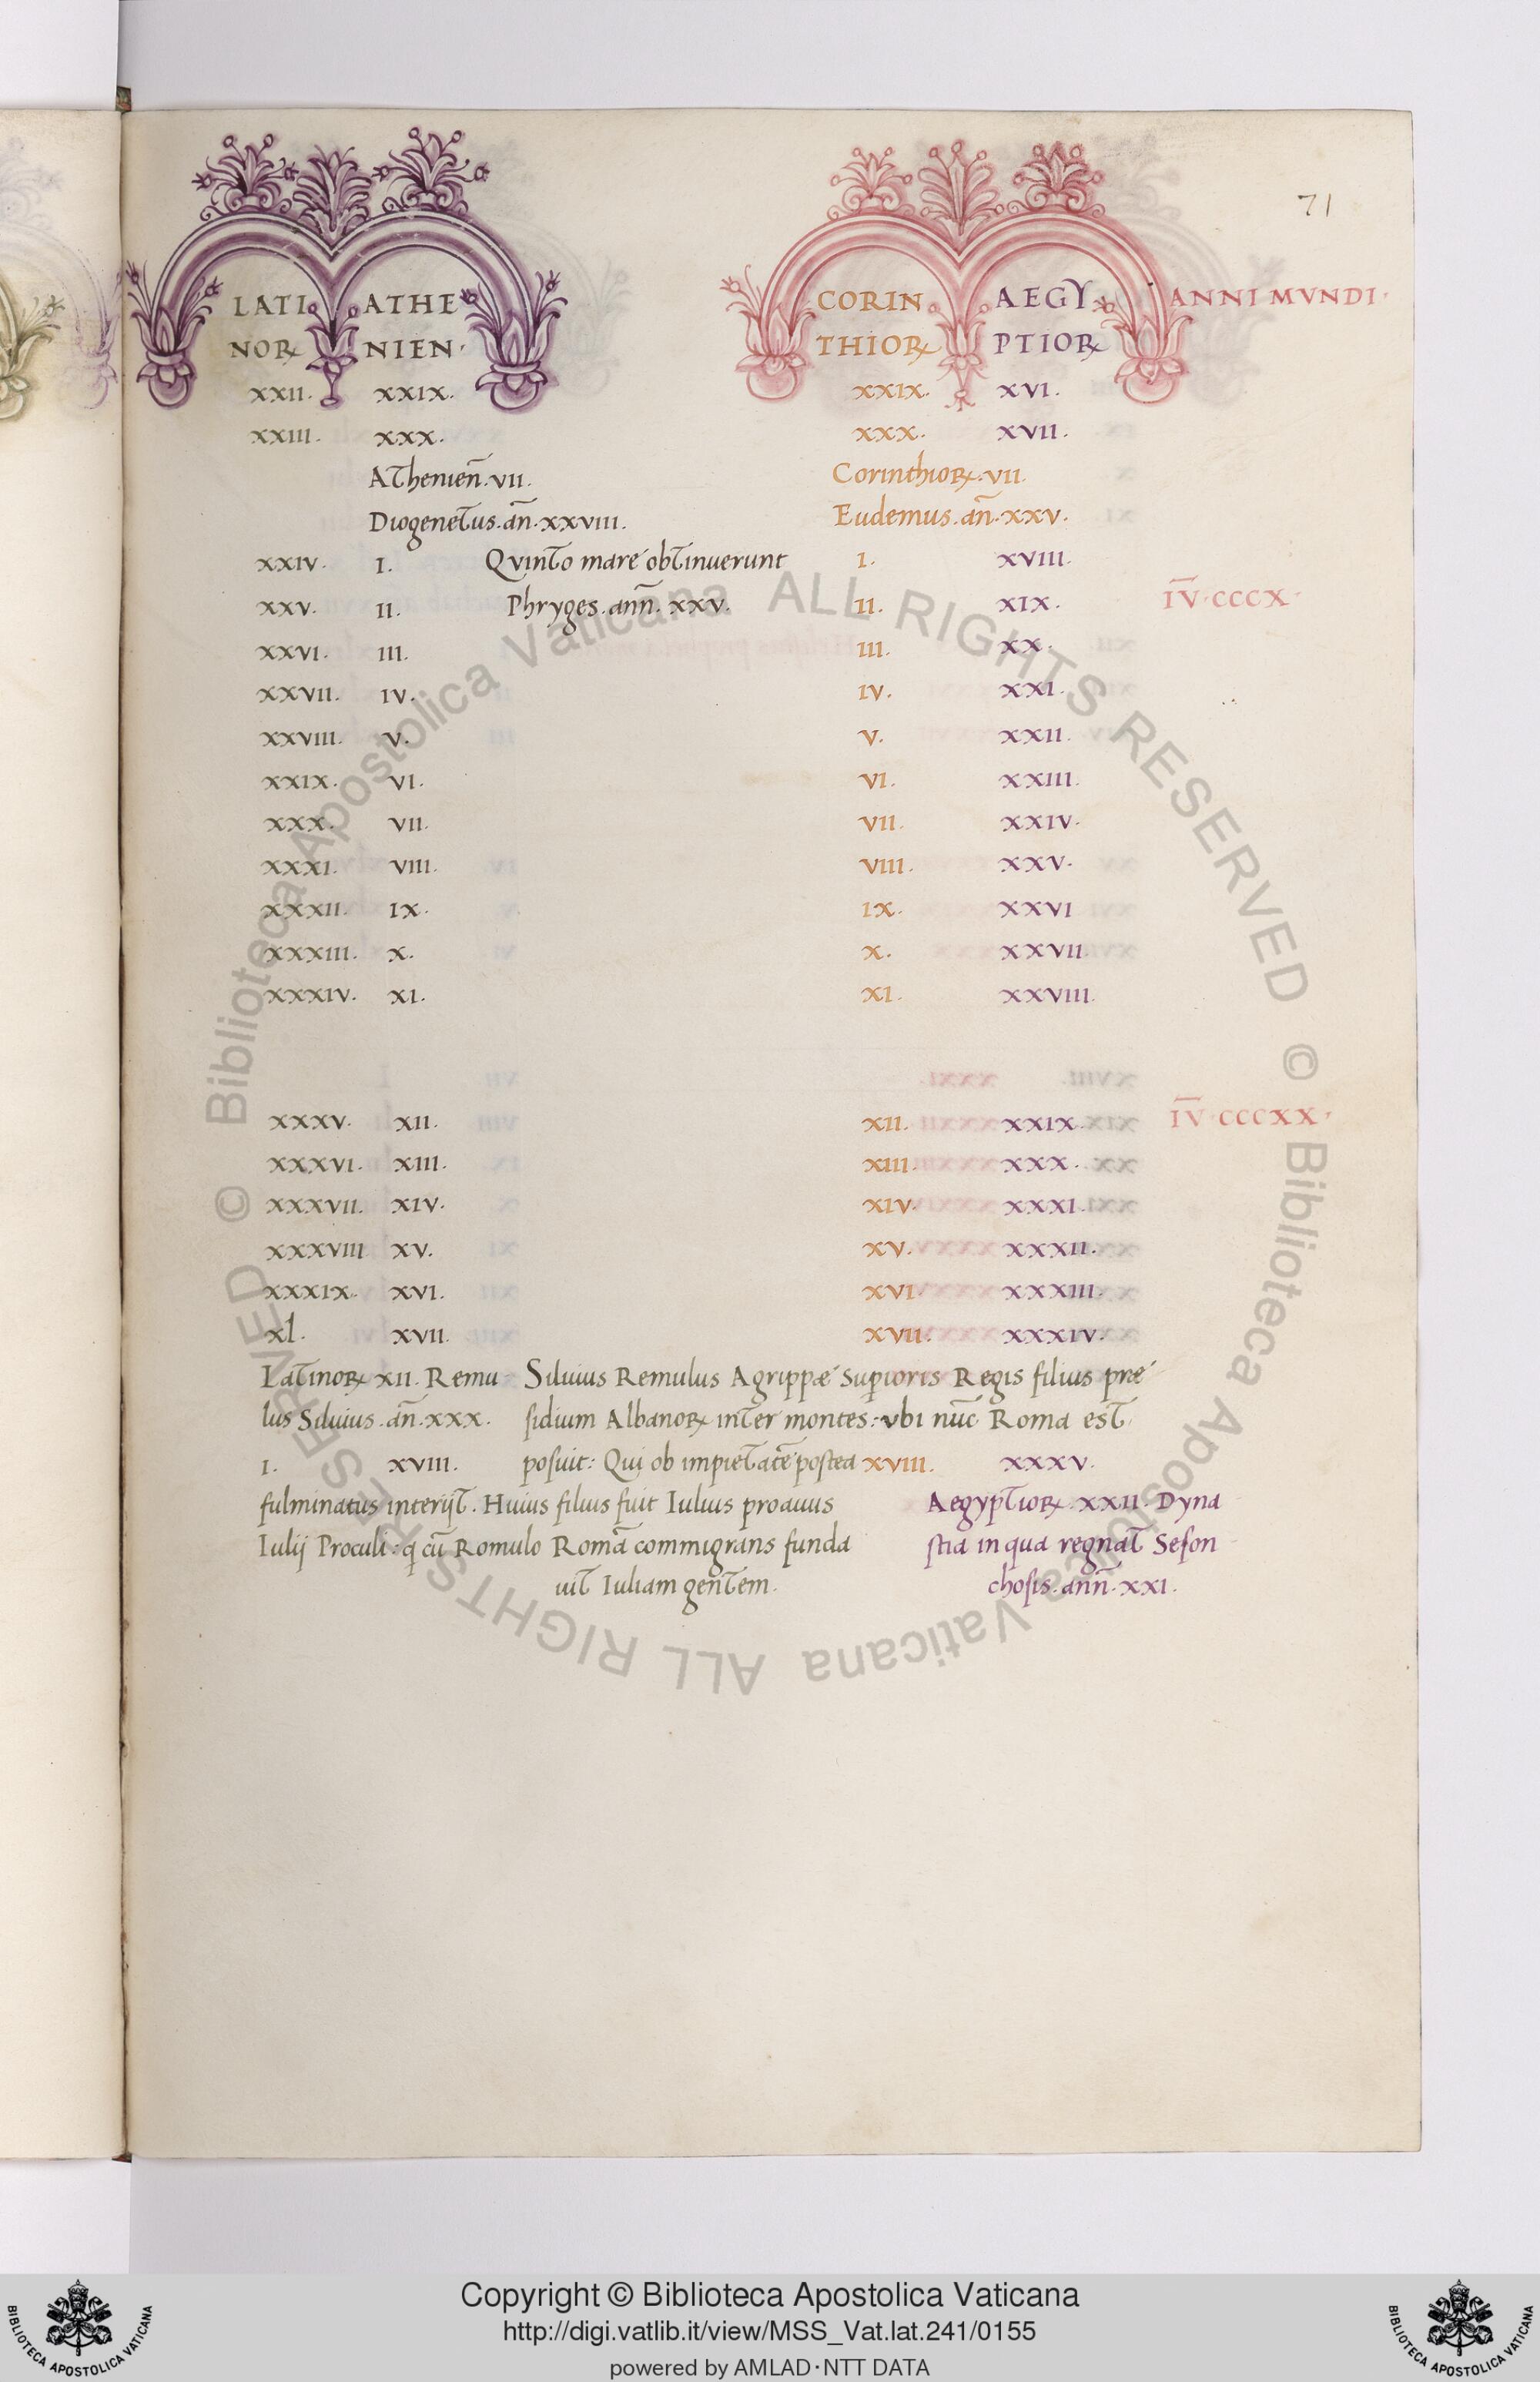 71
LATI ATHE CORIN AEGY ANNI MVNDI·
NOꝜ NIEN· THIOꝜ PTIOꝜ
XXII. XXIX. XXIX. XVI.
XXIII. XXX. XXX. XVII.
Athenien̄. VII. CorinthioꝜ. VII.
Diogenetus. an̄. XXVIII. Eudemus. an̄. XXV.
XXIV. I. Qvinto mare obtinuerunt I. XVIII.
XXV. II. Phryges. ann̄. XXV. II. XIX. I̅V̅·CCCX·
XXVI. III. III. XX.
XXVII. IV. IV. XXI.
XXVIII. V. V. XXII.
XXIX. VI. VI. XXIII.
XXX. VII. VII. XXIV.
XXXI. VIII. VIII. XXV.
XXXII. IX. IX. XXVI
XXXIII. X. X. XXVII.
XXXIV. XI. XI. XXVIII.
XXXV. XII. XII. XXIX. I̅V̅·CCCXX·
XXXVI. XIII. XIII. XXX.
XXXVII. XIV. XIV. XXXI.
XXXVIII XV. XV. XXXII.
XXXIX. XVI. XVI. XXXIII.
xl. XVII. XVII. XXXIV.
LatinoꝜ XII. Remu Siluius Remulus Agrippæ supioris Regis filius præ
lus Siluius. an̄. XXX. sidium AlbanoꝜ inter montes: vbi nūc Roma est
I. XVIII. posuit: Qui ob impietatē postea XVIII. XXXV.
fulminatus interijt. Huius filius fuit Iulius proauus AegyptioꝜ. XXII. Dyna
Iulij Proculi: q cū Romulo Romā commigrans funda stia in qua regnat Seson
uit Iuliam gentem. chosis. ann̄. XXI.
© Biblioteca Apostolica Vaticana ALL RIGHTS RESERVED © Biblioteca Apostolica Vaticana ALL RIGHTS RESERVED
Copyright © Biblioteca Apostolica Vaticana
http://digi.vatlib.it/view/MSS_Vat.lat.241/0155
powered by AMLAD·NTT DATA
BIBLIOTECA APOSTOLICA VATICANA
BIBLIOTECA APOSTOLICA VATICANA